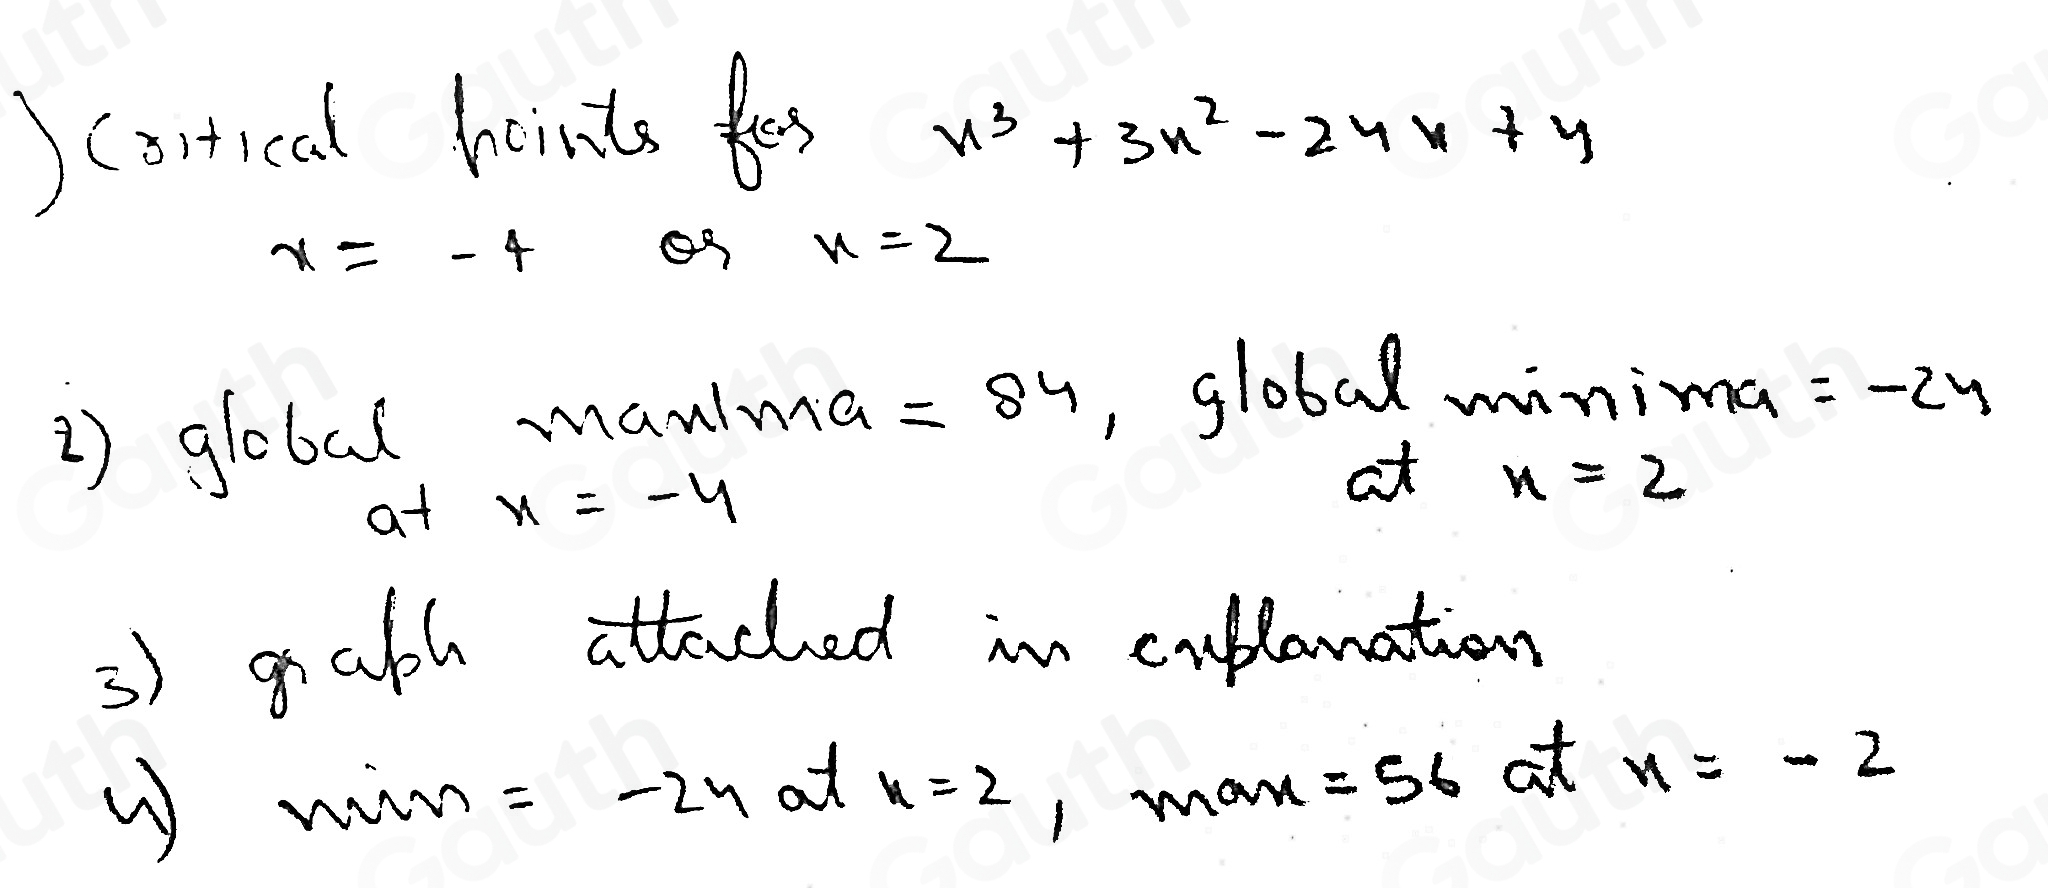 ) Critical points for x³ + 3x² - 24x + 4
x = -4 or x = 2
2) global maxima = 84, global minima = -24
at x = -4 at x = 2
3) graph attached in explanation
4) min = -24 at x = 2, max = 56 at x = -2
Gauth